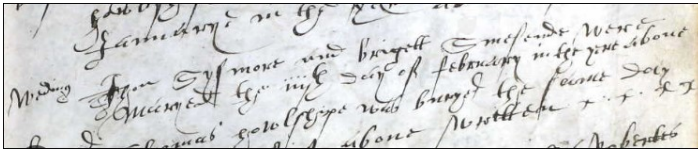 January in the yere
Wedinge Jhon Sysmore and Brigett Smesende were
Maryed the iiijth day of february in the yere above
Thomas howlshipe was buryed the same day
above wrytten
Robertes